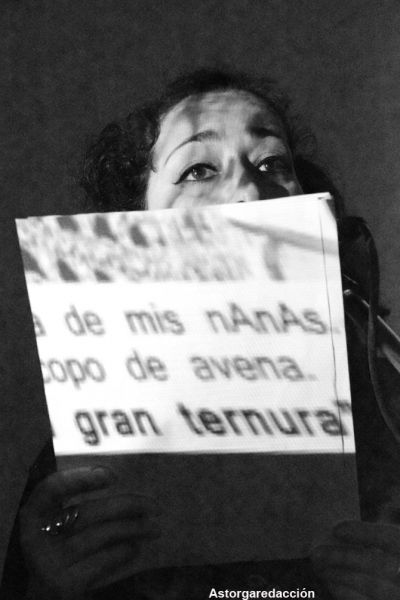 a de mis nAnAs..
copo de avena..
gran ternura"
Astorgaredacción